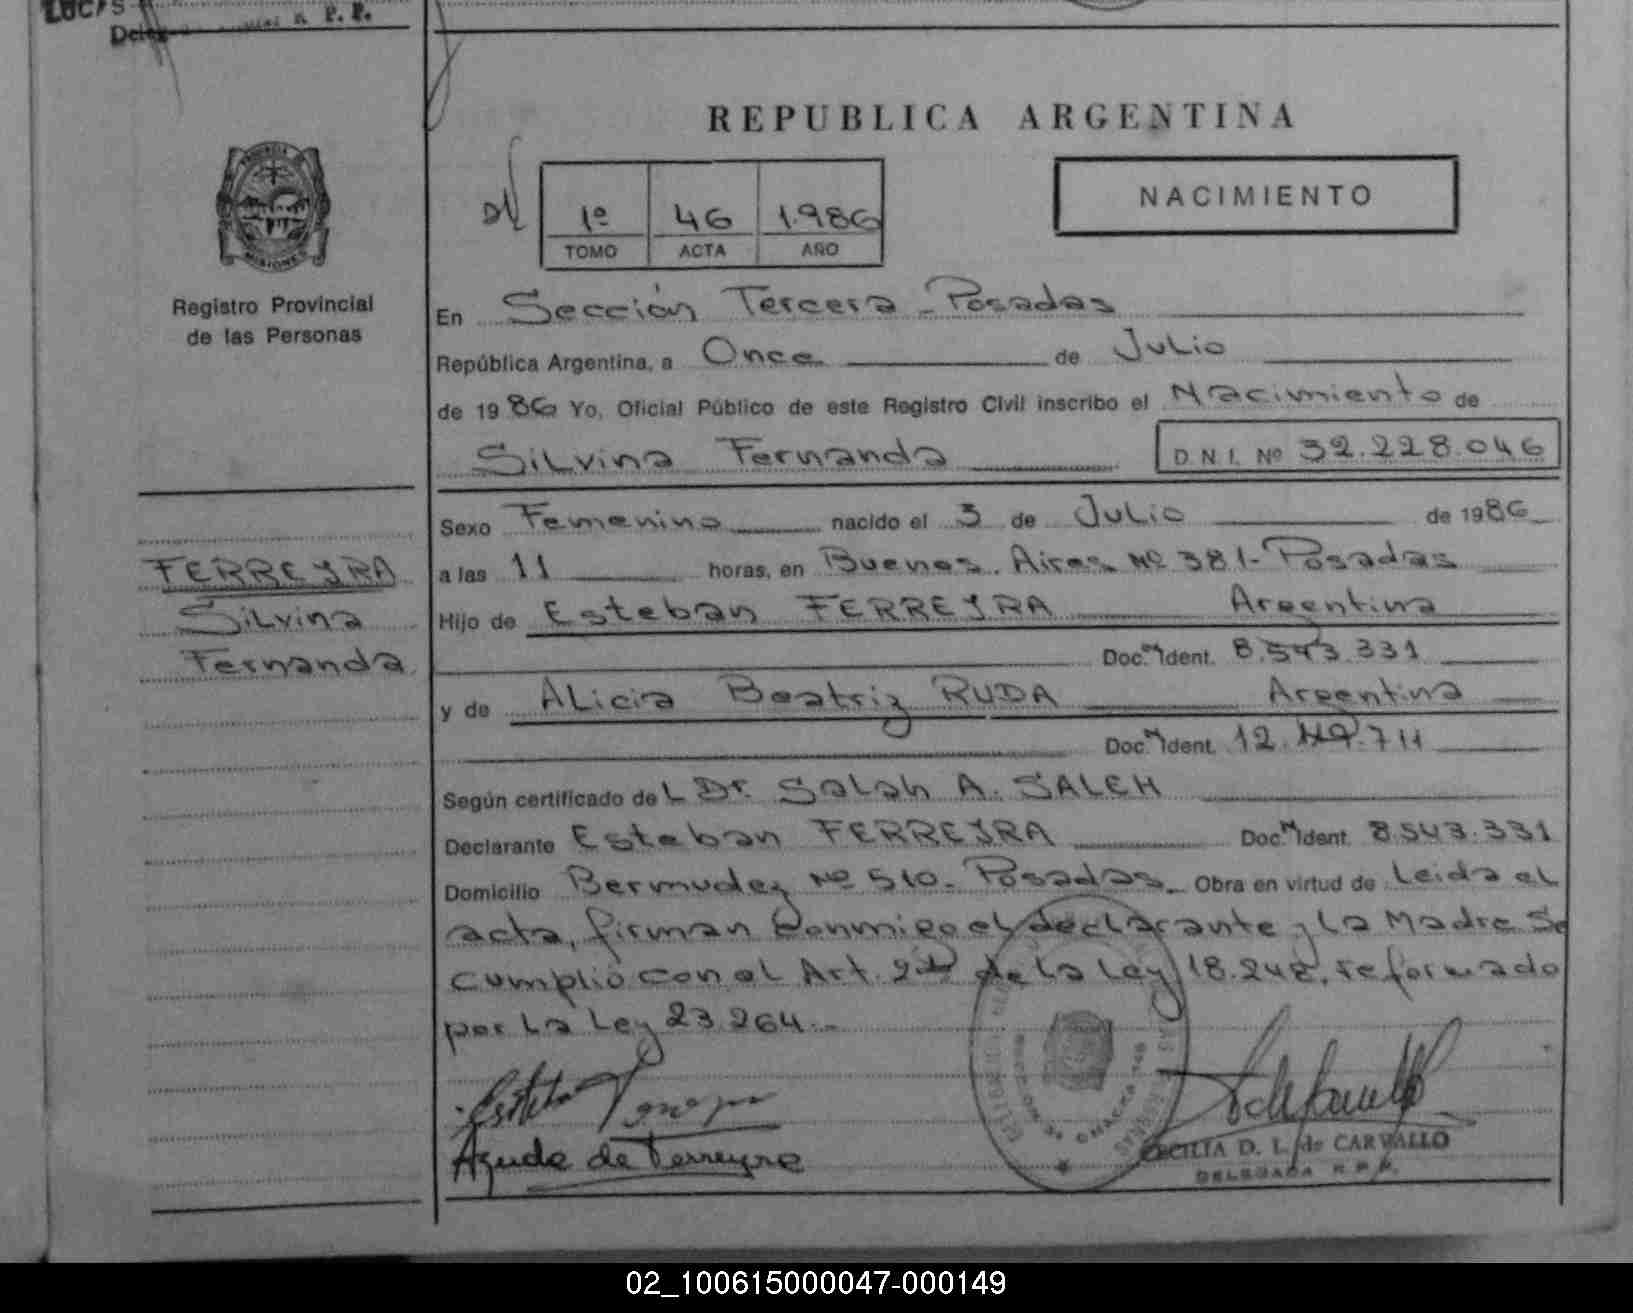 REPUBLICA ARGENTINA
NACIMIENTO
1º 46 1.986
TOMO ACTA AÑO
PROVINCIA DE
MISIONES
Registro Provincial
de las Personas
En Sección Tercera - Posadas
República Argentina, a Once de Julio
de 1986 Yo, Oficial Público de este Registro Civil inscribo el Nacimiento de
Silvina Fernanda D.N.I. Nº 32.228.046
Sexo Femenino nacido el 3 de Julio de 1986
FERREYRA
Silvina
Fernanda
a las 11 horas, en Buenos Aires Nº 381- Posadas
Hijo de Esteban FERREYRA Argentina
Doc. Ident. 8.543.331
y de Alicia Beatriz RUDA Argentina
Doc. Ident. 12.119.711
Según certificado del Dr. Salah A. SALEH
Declarante Esteban FERREYRA Doc. Ident. 8.543.331
Domicilio Bermudez Nº 510- Posadas. Obra en virtud de Leida el
acta, firman conmigo el declarante y la Madre Se
cumplió con el Art. de la Ley 18.248, reformado
por la Ley 23.264.-
de Ferreyra
CECILIA D. L. de CARVALLO
DELEGADA R.P.P.
02_100615000047-000149